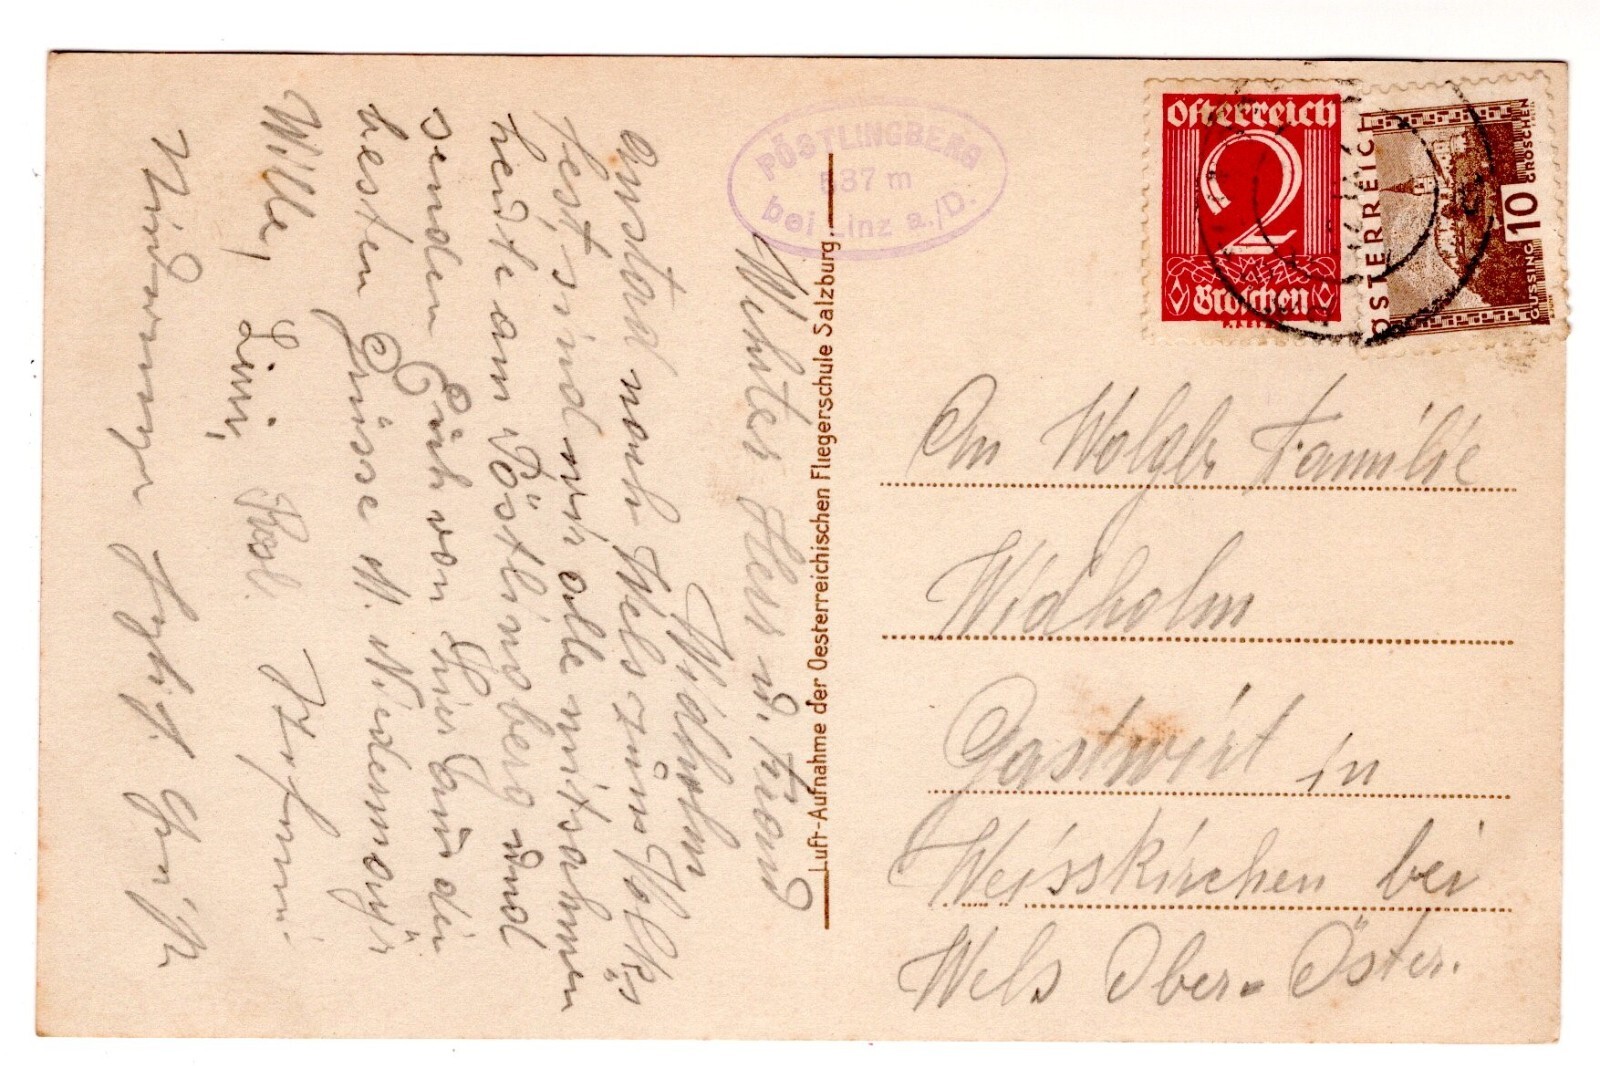 Werter Herr u. Frau
Widholm
anstad nach Wels zum Volks
fest, sind wir alle mitsammen
heute am Pöstlingberg und
senden Euch von hier aus die
besten Grüsse M. Niedermayr
Willy, Linni, Rosl.
PÖSTLINGBERG
537 m
bei Linz a./D.
Luft-Aufnahme der Oesterreichischen Fliegerschule Salzburg.
Österreich
2
Groschen
ÖSTERREICH
10
GROSCHEN
GÜSSING
An Wolgb. Familie
Widholm
Gastwirt in
Weisskirchen bei
Wels Ober-Öster.